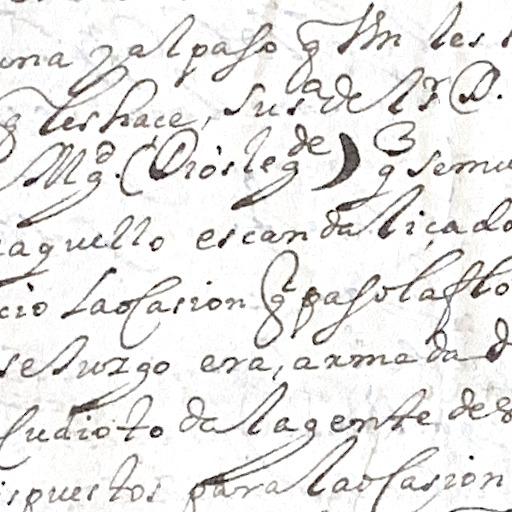 una y al paso q̃ Vm les
q les haçe, sus a del Sr D.
Mgd. (Dios leg de) q semu
aquello escandaliçado
cio la ocasion q̃ paso la flo
se Juzgo era, armada d
Cudioto da la gente de
ispuestos para la ocasion